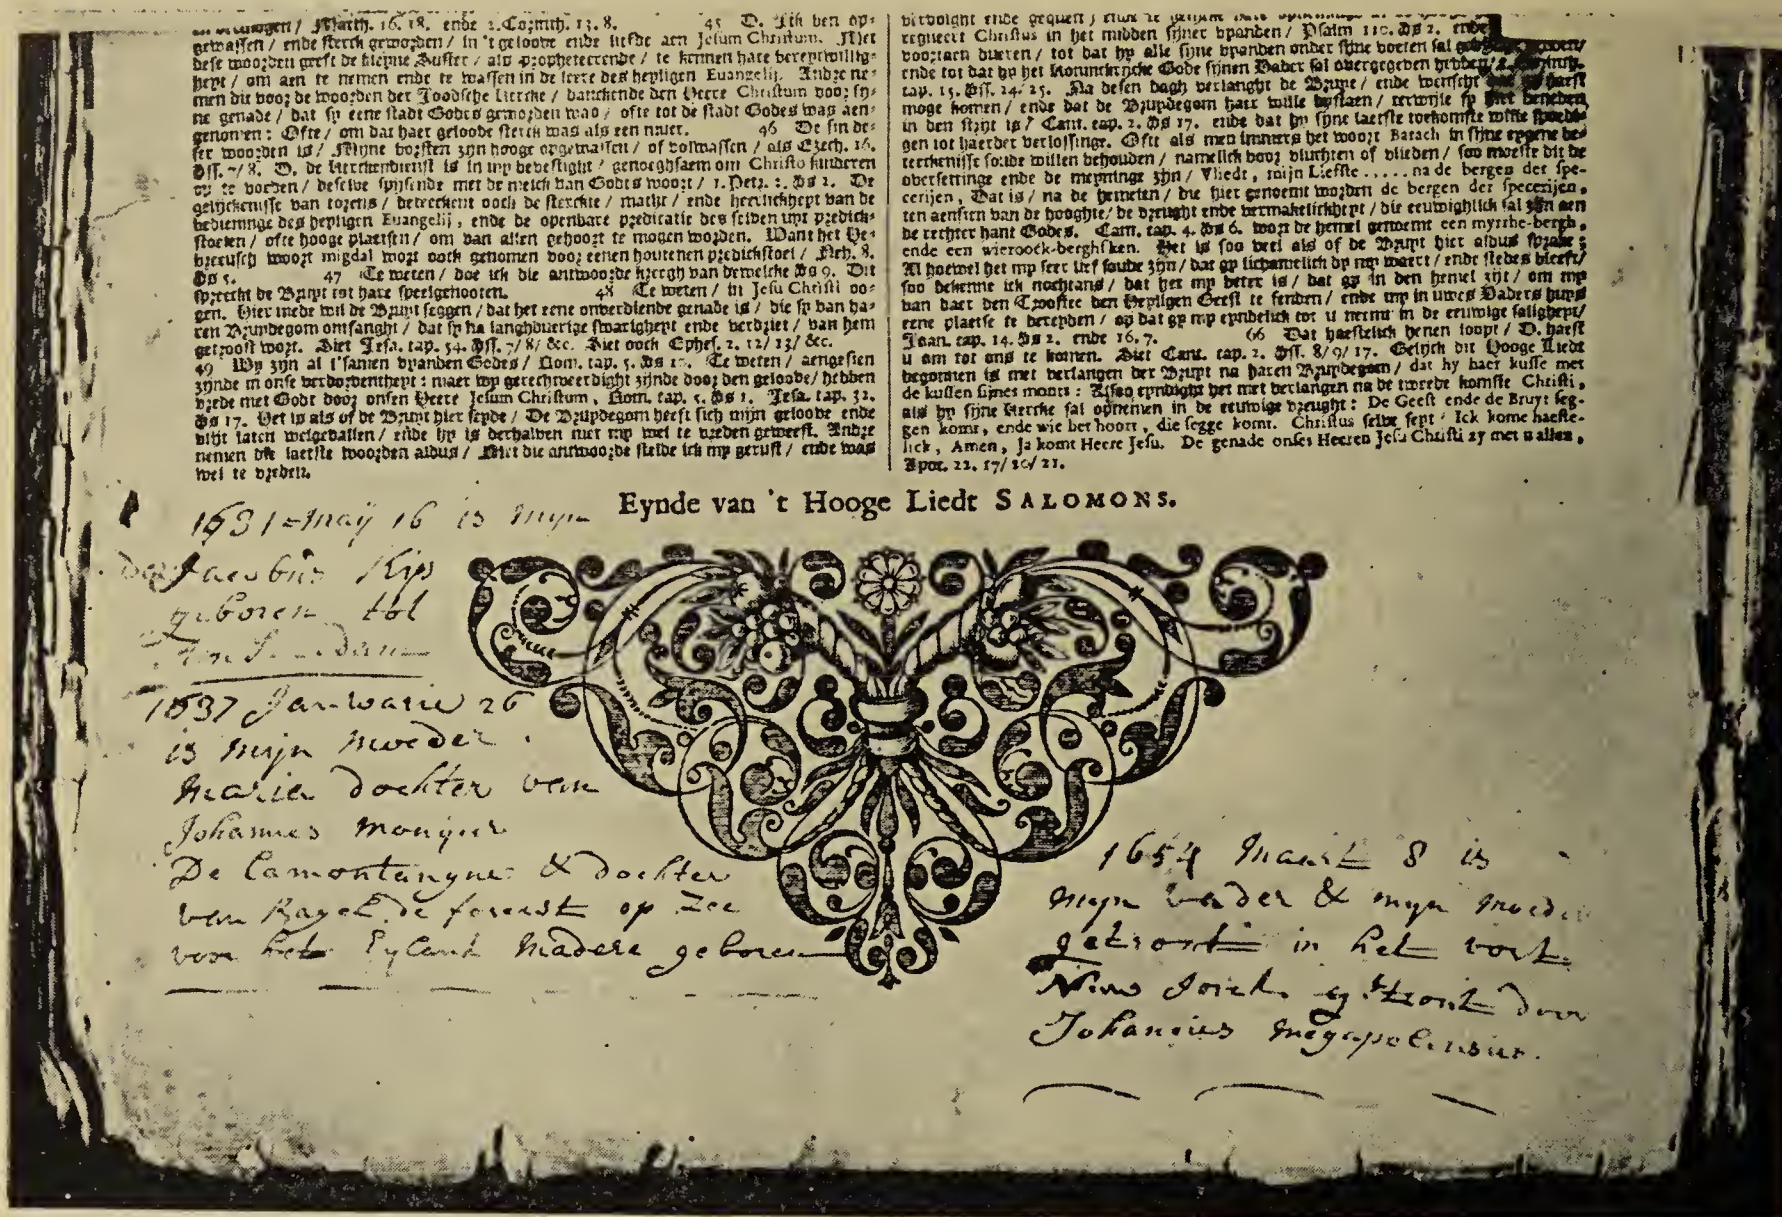 gewassen / ende sterck geworden / in 't geloove ende liefde aen Jesum Christum. Met
dese woorden geeft de kleyne Suster / als propheteerende / te kennen hare bereytwillig-
heyt / om aen te nemen ende te wassen in de leere des heyligen Euangelij. Andre ne-
men dit voor de woorden der Joodsche Kercke / danckende den Heere Christum voor sy-
ne genade / dat sy eene stadt Godes geworden was / ofte tot de stadt Godes was aen-
genomen : Ofte / om dat haer geloove sterck was als een muer. 46 De sin de-
ser woorden is / Mijne borsten zijn hooge opgewassen / of volwassen / als Ezech. 16.
vss. 7/8. D. de Kerckendienst is in my bevestight / genoeghsaem om Christo kinderen
op te voeden / deselve spijsende met de melck van Godts woort / 1. Petr. 2. vs 2. De
gelijckenisse van torens / beteeckent oock de sterckte / macht / ende heerlickheyt van de
bedieninge des heyligen Euangelij, ende de openbare predicatie des selven uyt predick-
stoelen / ofte hooge plaetsen / om van allen gehoort te mogen worden. Want het He-
breeusch woort migdal wort oock genomen voor eenen houtenen predickstoel / Neh. 8.
vs 5. 47 Te weten / doe ick die antwoorde kreegh van dewelcke vs 9. Dit
spreeckt de Bruyt tot hare speelgenooten. 48 Te weten / in Jesu Christi oo-
gen. Hier mede wil de Bruyt seggen / dat het eene onverdiende genade is / die sy van ha-
ren Bruydegom ontfanght / dat sy na langhduerige swarigheyt ende verdriet / van hem
getroost wort. Siet Jesa. cap. 54. vss. 7/8/ &c. Siet oock Ephes. 2. 12/13/ &c.
49 Wy zijn al t'samen vyanden Godes / Rom. cap. 5. vs 10. Te weten / aengesien
zijnde in onse verdorventheyt : maer wy gerechtveerdight zijnde door den geloove / hebben
vrede met Godt door onsen Heere Jesum Christum, Rom. cap. 5. vs 1. Jesa. cap. 32.
vs 17. Het is als of de Bruyt hier seyde / De Bruydegom heeft sich mijn geloove ende
vlijt laten welgevallen / ende hy is derhalven met my wel te vreden geweest. Andre
nemen dese laetste woorden aldus / Met die antwoorde stelde ick my gerust / ende was
wel te vreden.
regneert Christus in het midden sijner vyanden / Psalm 110. vs 2. ende
voortaen dueren / tot dat hy alle sijne vyanden onder sijne voeten sal
ende tot dat hy het Koninckrijcke Gode sijnen Vader sal overgegeven hebben /
cap. 15. vss. 24/25. Na desen dagh verlanght de Bruyt / ende wenscht
moge komen / ende dat de Bruydegom haer wille bystaen / terwijle sy hier beneden
in den strijt is / Cant. cap. 2. vs 17. ende dat hy sijne laetste toekomste wille spoedi-
gen tot haerder verlossinge. Ofte als men immers het woort Barach in sijne eygene be-
teeckenisse soude willen behouden / namelick voor vluchten of vlieden / soo moeste dit de
oversettinge ende de meyninge zijn / Vliedt, mijn Liefste ..... na de bergen der spe-
cerijen, Dat is / na de hemelen / die hier genoemt worden de bergen der specerijen,
ten aensien van de hooghte / de vreught ende vermakelickheyt / die eeuwighlick sal zijn aen
de rechter hant Godes. Cant. cap. 4. vs 6. wort de hemel genoemt een myrrhe-bergh,
ende een wieroock-berghsken. Het is soo veel als of de Bruyt hier aldus sprake ;
Al hoewel het my seer lief soude zijn / dat gy lichamelick by my waert / ende stedes bleeft /
soo bekenne ick nochtans / dat het my beter is / dat gy in den hemel zijt / om my
van daer den Trooster den Heyligen Geest te senden / ende my in uwes Vaders huys
eene plaetse te bereyden / op dat gy my eyndelick tot u neemt in de eeuwige saligheyt /
Joan. cap. 14. vs 2. ende 16. 7. 66 Dat haestelick henen loopt / D. haest
u om tot ons te komen. Siet Cant. cap. 2. vss. 8/9/17. Gelijck dit Hooge Liedt
begonnen is met verlangen der Bruyt na haren Bruydegom / dat hy haer kusse met
de kussen sijnes monts : Alsoo eyndight het met verlangen na de tweede komste Christi,
als hy sijne Kercke sal opnemen in de eeuwige vreught : De Geest ende de Bruyt seg-
gen komt, ende wie het hoort, die segge komt. Christus selve seyt : Ick kome haeste-
lick, Amen, Ja komt Heere Jesu. De genade onses Heeren Jesu Christi zy met u allen,
Apoc. 22. 17/20/21.
Eynde van 't Hooge Liedt SALOMONS.
1631 = May 16 is mijn
Jacobus Kip
geboren tot
1637 Janwarie 26
is mijn moeder
Maria dochter van
Johannes Monijeur
De Lamontangne & dochter
van Ragel de foreest op Zee
voor het Eyland Madere geboren
1654 Maart 8 is
mijn vader & mijn moeder
getrout in het vort
Niuw Jorck getrout door
Johannes Megapolensius.